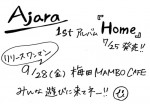 Ajara
1st アルバム『Home』
7/25発売!!
リリースワンマン
9/28(金) 梅田MAMBO CAFE
みんな遊びに来てネー!!